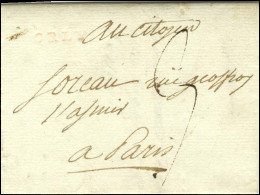 au citoyen
foreau rue geoffroy
l'asnier
a Paris